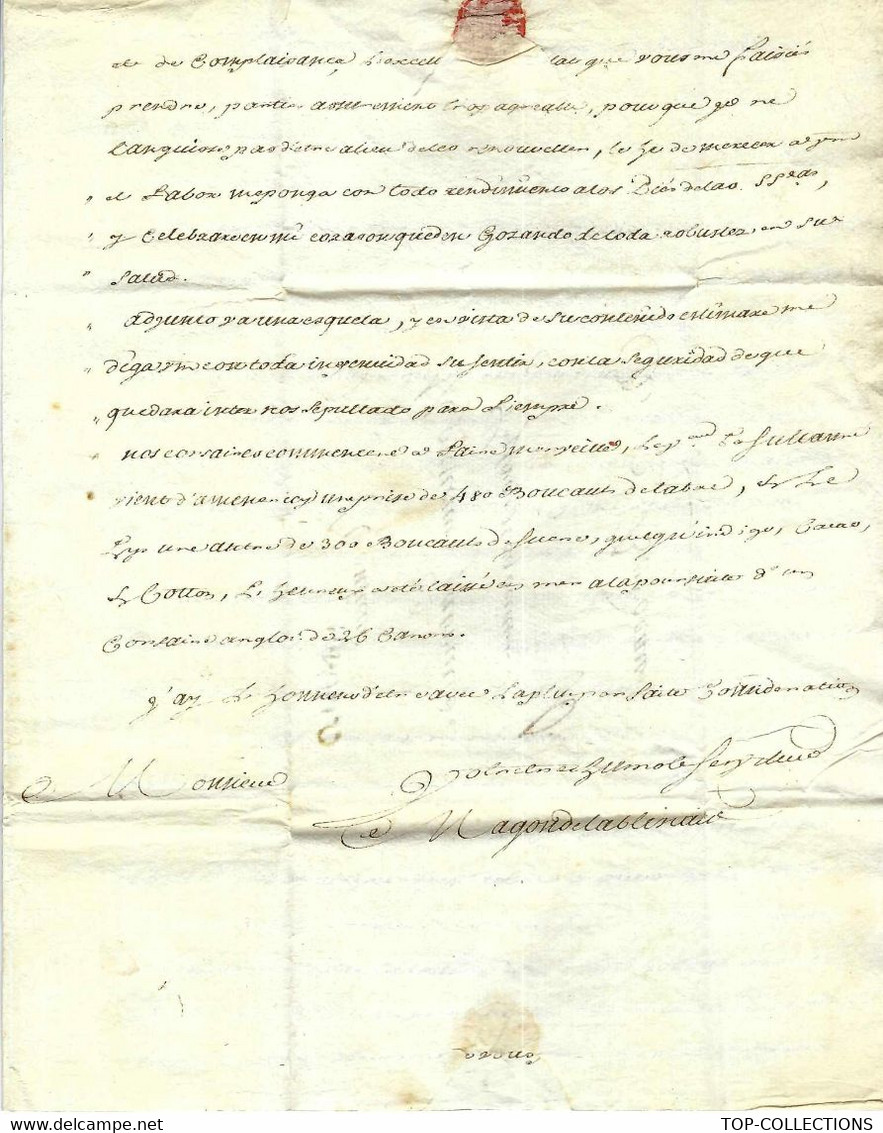 et de Complaisance, L'excell lait que vous me faisiés
prendre, partie assurement trop agreable, pour que je ne
languisse pas d'etre a lieu de les renouveller, le he de merecer a vm
" el favor me ponga con todo rendimiento a los Piés de las SSras,
" y Celebrare en mi corason queden Gozando de toda robustez en su
" salud.
" adjunto va una esquela, y en vista de su contenido estimare me
" diga vm con toda ingenuidad su sentir, con la seguridad de que
" quedara inter nos sepultado para siempre.
nos corsaires commencent a faire merveille, La Sultanne
vient d'amener icy une prise de 480 Boucauts de tabac, & Le
Lys une autre de 300 Boucauts de sucre, quelqu'indigo, Cacao,
& Cotton, L'Heureux a eté laissé en mer a la poursuite d'un
Corsaire anglois de 26 Canons.
j'ay L'honneur d'etre avec la plus parfaite Consideration
Monsieur
Votre tres humble Serviteur
Magon de la blinaie
TOP-COLLECTIONS